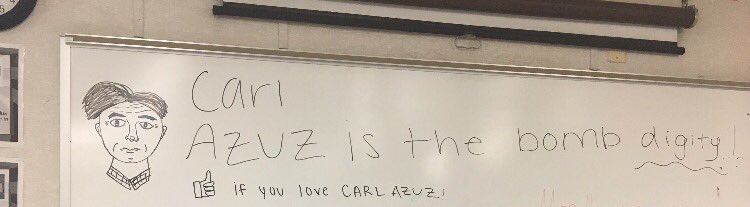 Carl
AZUZ is the bomb digity!
if you love CARL AZUZ!